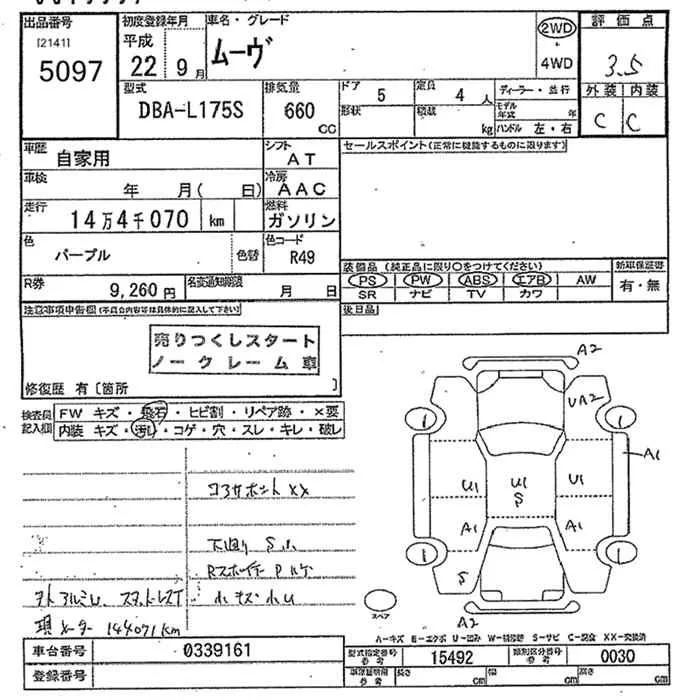 出品番号 初度登録年月 車名・グレード 2WD 評価点
[2141] 平成 ムーヴ ・ 3.5
5097 22年9月 4WD 外装 内装
型式 排気量 ドア 5 定員 4人 ディーラー・並行 C C
DBA-L175S 660cc 形状 積載 kg モデル年式 年
ハンドル 左・右
車歴 自家用 シフト AT セールスポイント(正常に機能するものに限ります)
車検 年 月( 日) 冷房 AAC
走行 14万4千070 km 燃料 ガソリン
色 パープル 色替 色コード R49
R券 9,260円 名変通知期限 月 日
装備品(純正品に限り○をつけてください) 新車保証書
PS PW ABS エアB AW 有・無
SR ナビ TV カワ
注意事項申告欄(不具合内容等は具体的に記入して下さい) 後日品
売りつくしスタート
ノークレーム車
修復歴 有〔箇所 〕
検査員記入欄 FW キズ・飛石・ヒビ割・リペア跡・×要
内装 キズ・汚れ・コゲ・穴・スレ・キレ・破レ
コアサポート XX
下廻り S小
小キズ・小U
現メーター 144071km
A2
UA2
A1
U1 U1 S U1
A1 A1
S
A2
スペア
A-キズ E-エクボ U-凹み W-補修跡 S-サビ C-腐食 XX-交換済
車台番号 0339161
登録番号
型式指定番号 参考 15492 類別区分番号 参考 0030
車庫証明用 参考 長さ cm 幅 cm 高さ cm